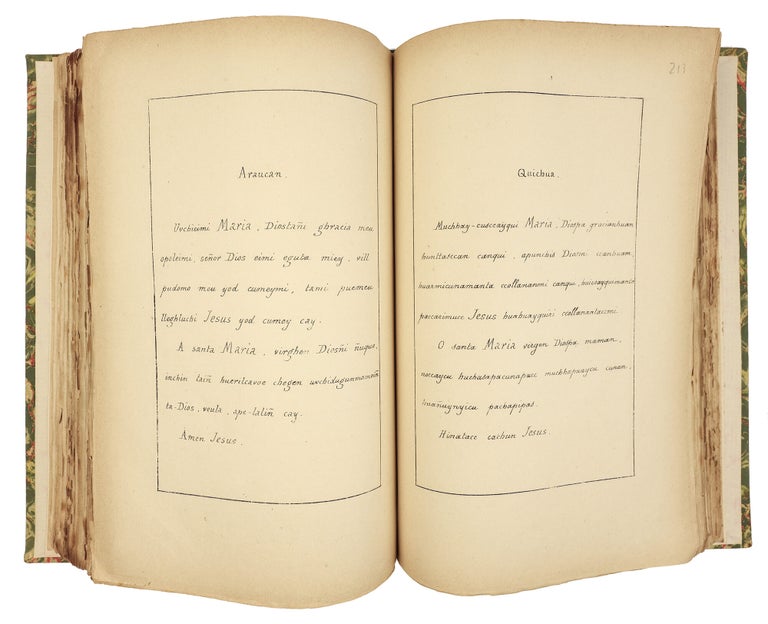 Araucan.
Uvchieimi Maria, Diostañi ghracia meu
opoleimi, señor Dios eimi eguta miey, vill
pudomo meu yod cumeymi, tami puemeu
lleghluchi Jesus yod cumey cay.
A santa Maria, virghen Diosñi ñuque,
inchin lain huerilcavoe chegen
ta-Dios, veula, ape-laliñ cay.
Amen Jesus.
213
Quichua.
Muchhay-cusccayqui Maria, Diospa gracianhuan
hunttasccan canqui, apunchis Diosmi ccanhuam,
huarmicunamanta ccollananmi canqui,
paccarimucc Jesus ccollanantaccmi.
O santa Maria virgen Diospa maman,
noccaycu huchasapacunapacc muchhapuaycu cunan,
huañuyniycu pachapipas.
Hinatacc cachun Jesus.